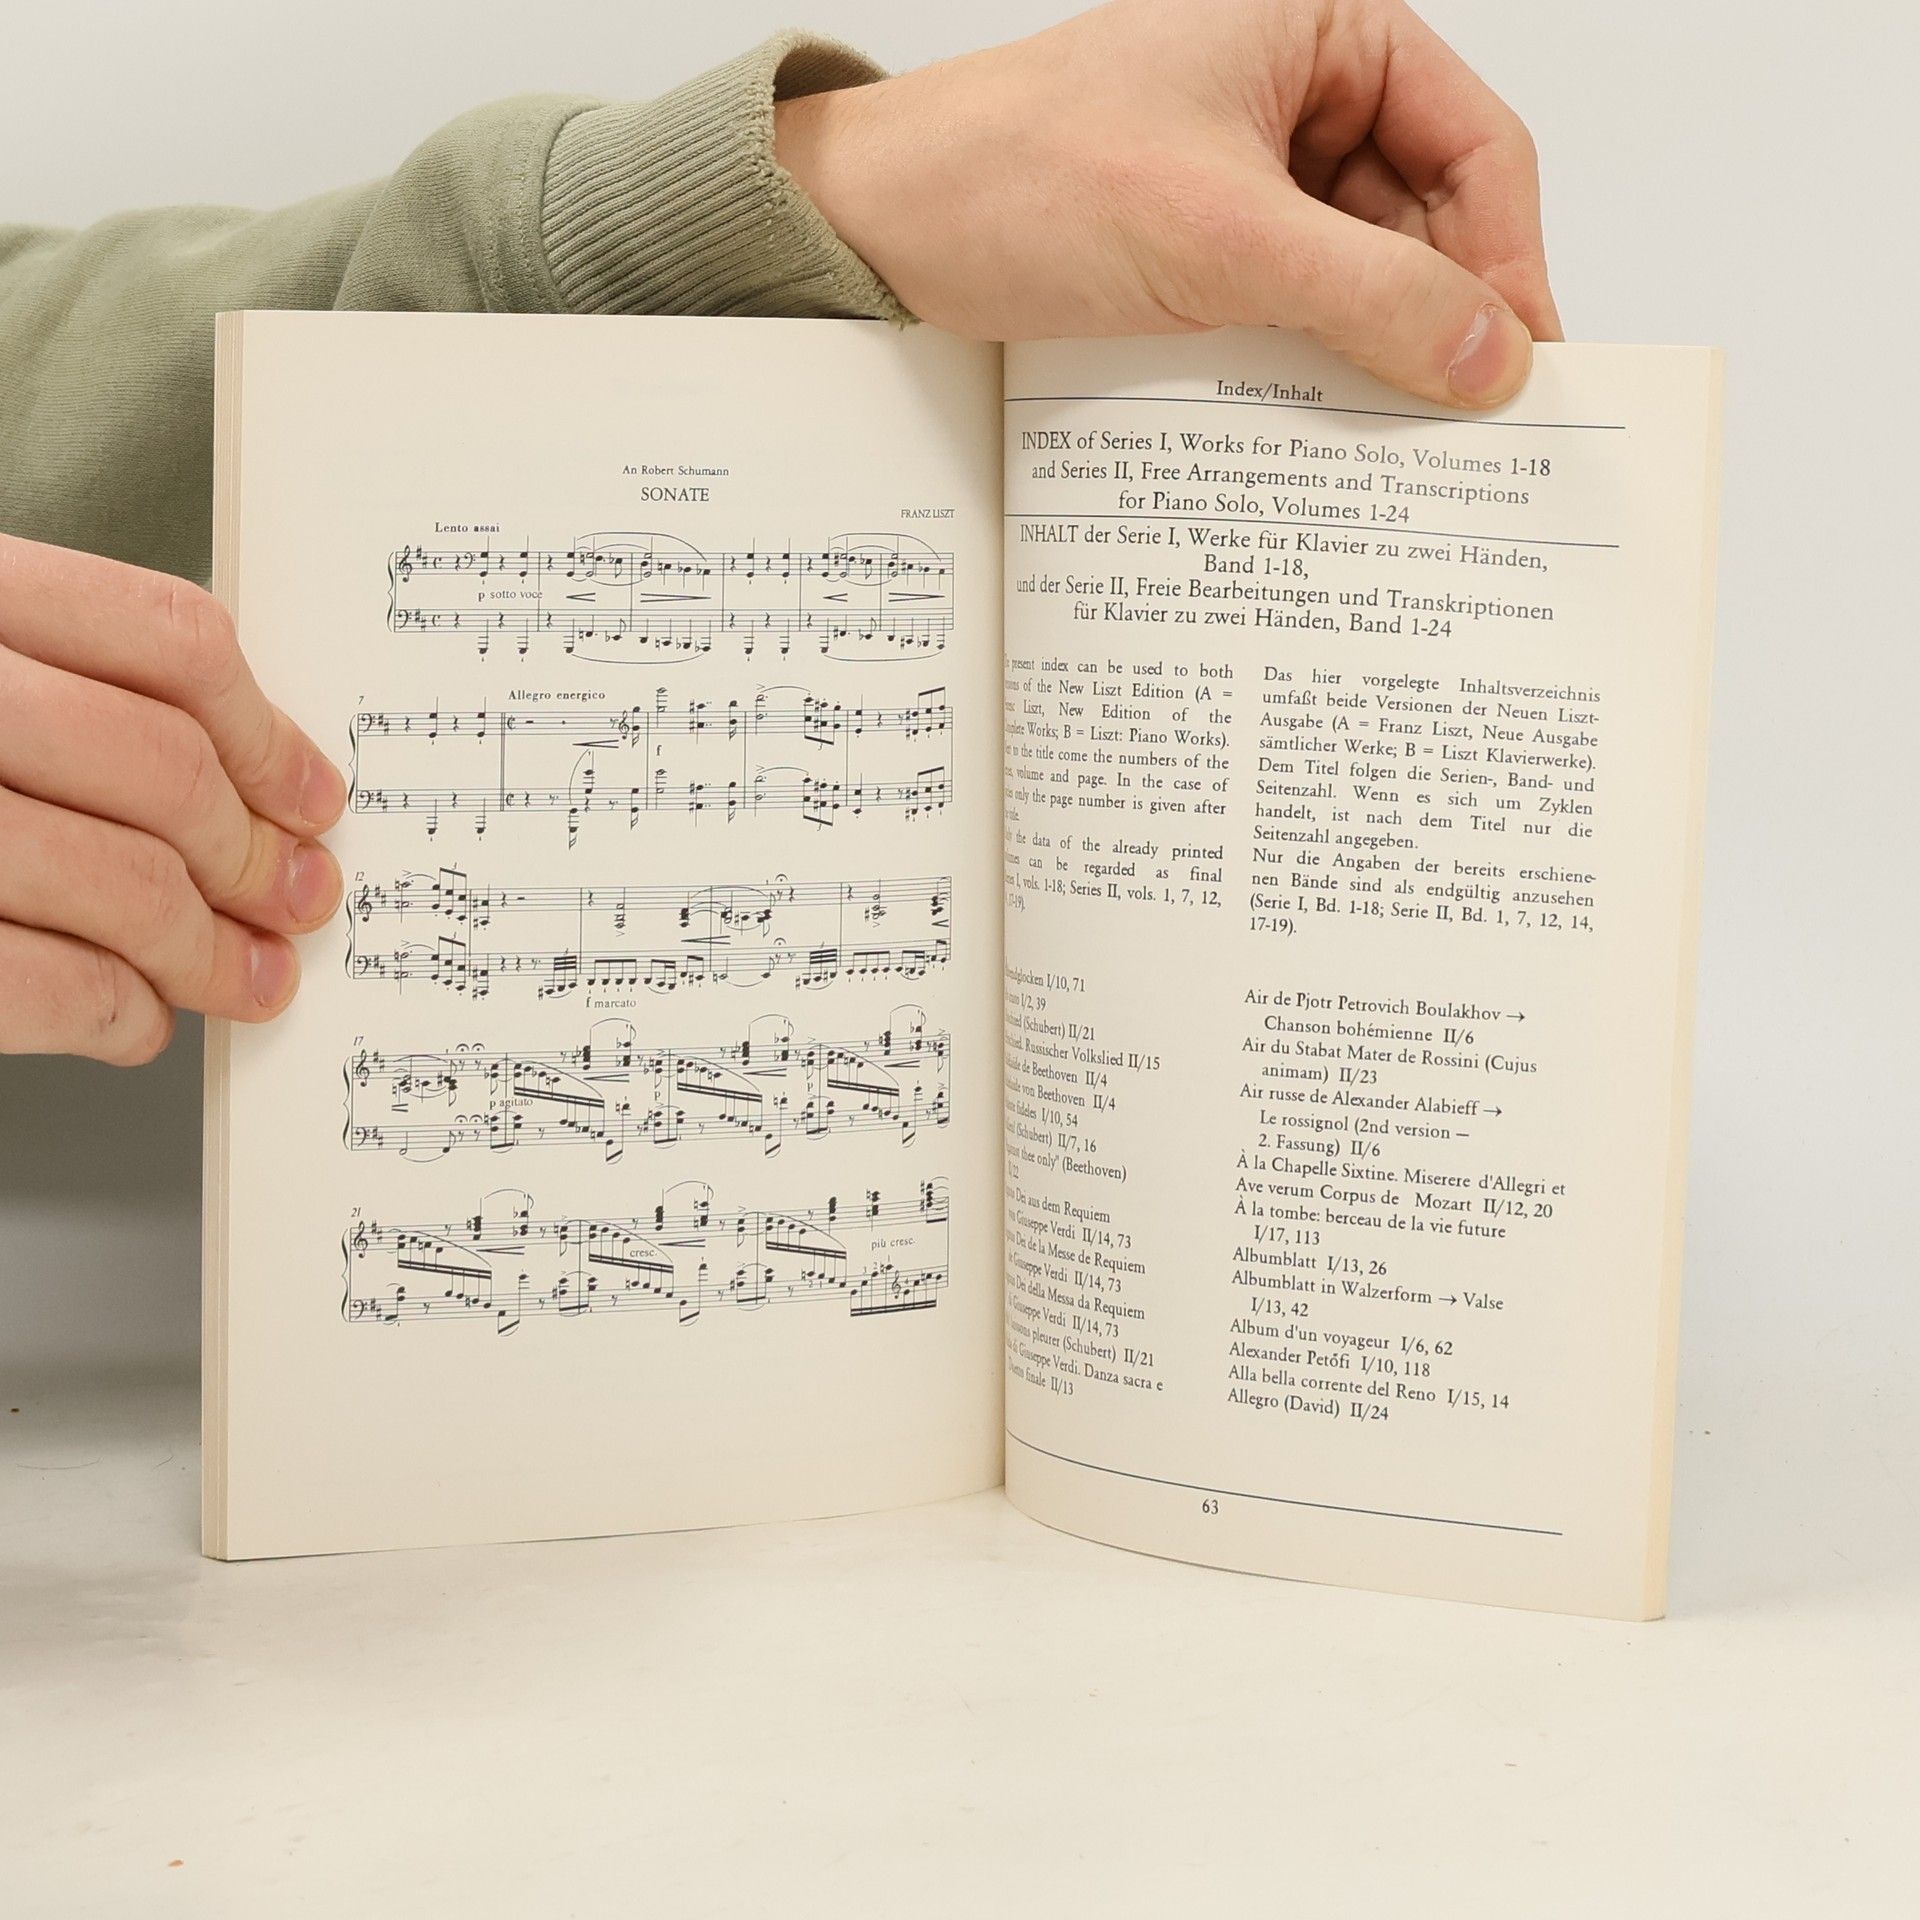 An Robert Schumann
SONATE
FRANZ LISZT
Lento assai
p sotto voce
7
Allegro energico
f
12
f marcato
17
p agitato
p
p
21
cresc.
più cresc.
Index/Inhalt
INDEX of Series I, Works for Piano Solo, Volumes 1-18
and Series II, Free Arrangements and Transcriptions
for Piano Solo, Volumes 1-24
INHALT der Serie I, Werke für Klavier zu zwei Händen,
Band 1-18,
und der Serie II, Freie Bearbeitungen und Transkriptionen
für Klavier zu zwei Händen, Band 1-24
present index can be used to both
of the New Liszt Edition (A =
Liszt, New Edition of the
Works; B = Liszt: Piano Works).
to the title come the numbers of the
volume and page. In the case of
only the page number is given after
the data of the already printed
can be regarded as final
I, vols. 1-18; Series II, vols. 1, 7, 12,
17-19).
Das hier vorgelegte Inhaltsverzeichnis
umfaßt beide Versionen der Neuen Liszt-
Ausgabe (A = Franz Liszt, Neue Ausgabe
sämtlicher Werke; B = Liszt Klavierwerke).
Dem Titel folgen die Serien-, Band- und
Seitenzahl. Wenn es sich um Zyklen
handelt, ist nach dem Titel nur die
Seitenzahl angegeben.
Nur die Angaben der bereits erschiene-
nen Bände sind als endgültig anzusehen
(Serie I, Bd. 1-18; Serie II, Bd. 1, 7, 12, 14,
17-19).
I/10, 71
I/2, 39
(Schubert) II/21
Russischer Volkslied II/15
de Beethoven II/4
von Beethoven II/4
fideles I/10, 54
(Schubert) II/7, 16
thee only" (Beethoven)
II/22
Dei aus dem Requiem
Giuseppe Verdi II/14, 73
Dei de la Messe de Requiem
Giuseppe Verdi II/14, 73
Dei della Messa da Requiem
Giuseppe Verdi II/14, 73
pleurer (Schubert) II/21
di Giuseppe Verdi. Danza sacra e
finale II/13
Air de Pjotr Petrovich Boulakhov →
Chanson bohémienne II/6
Air du Stabat Mater de Rossini (Cujus
animam) II/23
Air russe de Alexander Alabieff →
Le rossignol (2nd version —
2. Fassung) II/6
À la Chapelle Sixtine. Miserere d'Allegri et
Ave verum Corpus de Mozart II/12, 20
À la tombe: berceau de la vie future
I/17, 113
Albumblatt I/13, 26
Albumblatt in Walzerform → Valse
I/13, 42
Album d'un voyageur I/6, 62
Alexander Petőfi I/10, 118
Alla bella corrente del Reno I/15, 14
Allegro (David) II/24
63